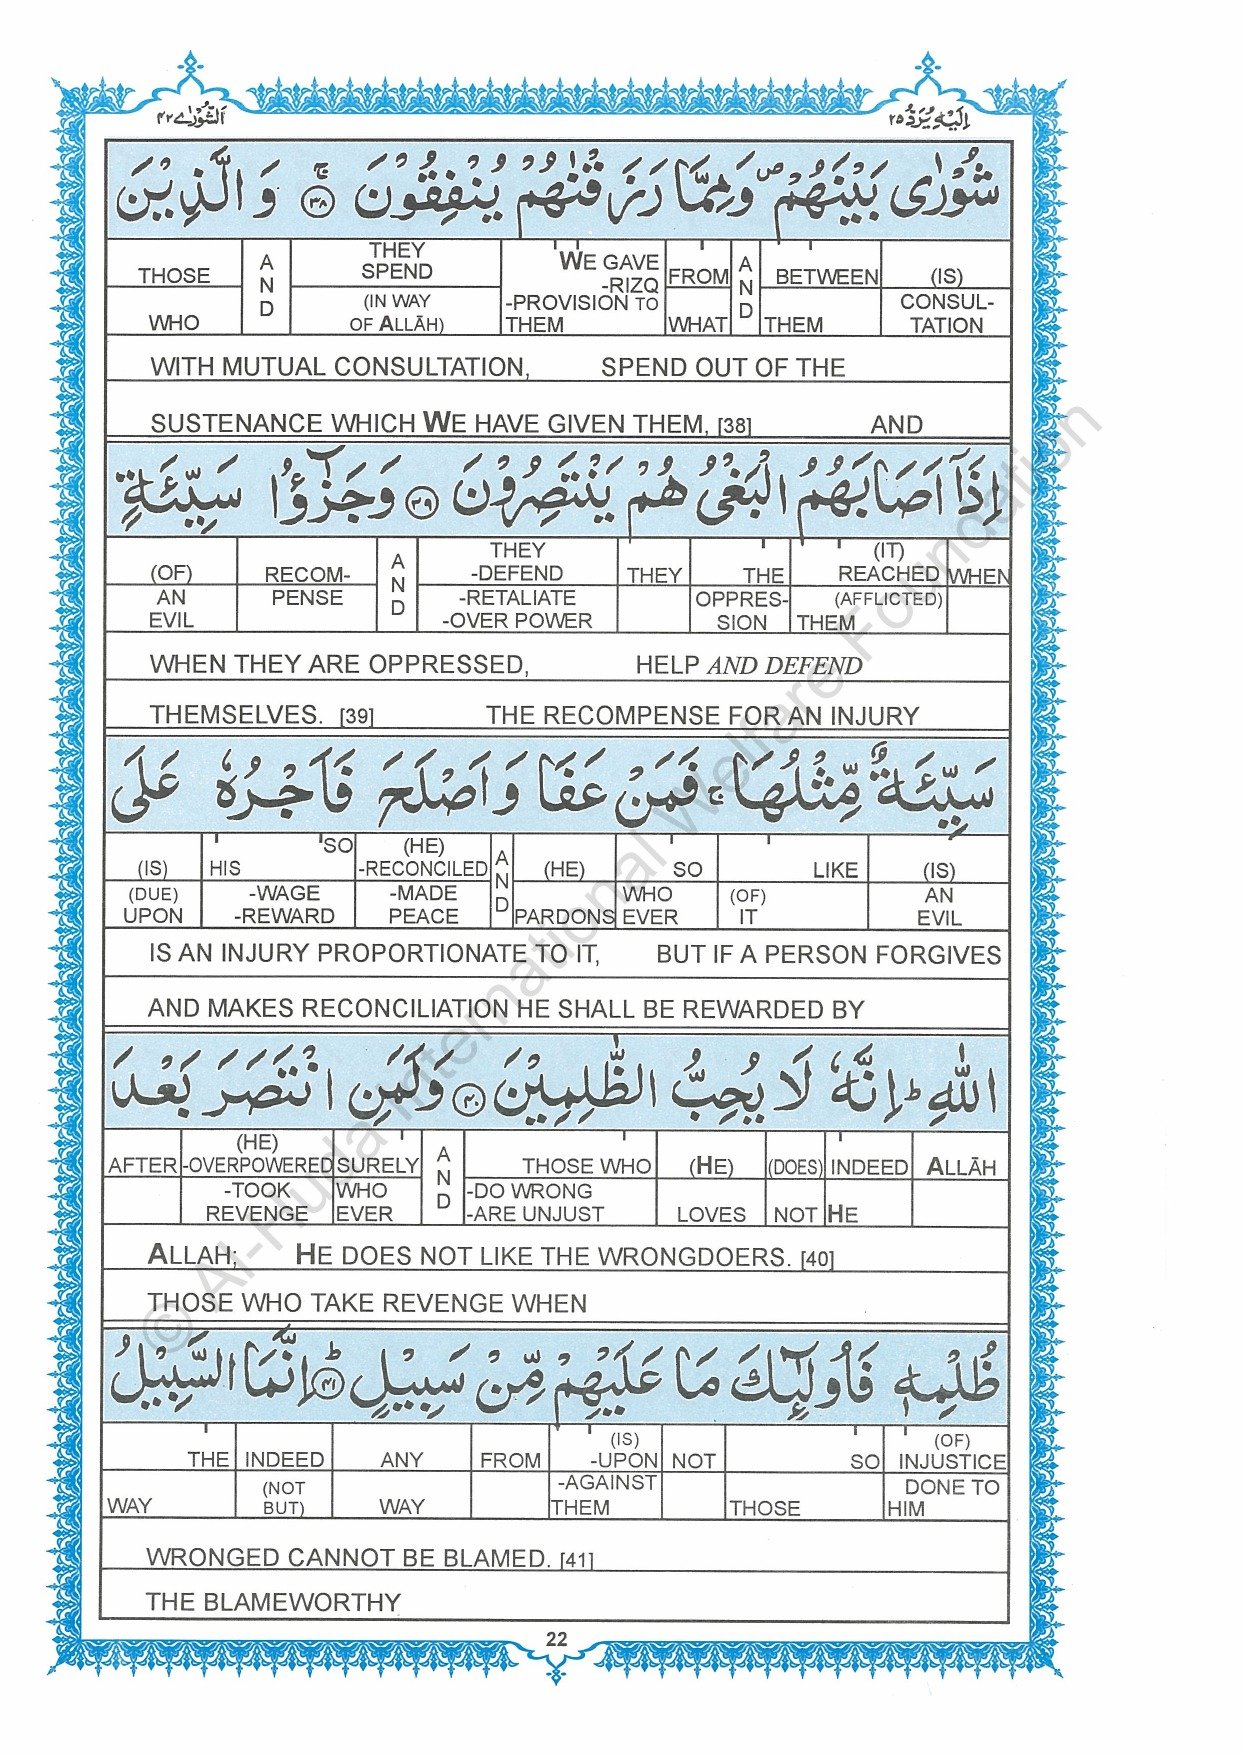 الشورٰے ٤٢
اِلَيْهِ يُرَدُّ ٢٥
شُوْرٰى بَيْنَهُمْ ۪ وَمِمَّا رَزَقْنٰهُمْ يُنْفِقُوْنَ ۚ ﴿٣٨﴾ وَالَّذِيْنَ
THOSE AND THEY SPEND WE GAVE -RIZQ FROM AND BETWEEN (IS)
WHO (IN WAY OF ALLĀH) -PROVISION TO THEM WHAT THEM CONSUL-TATION
WITH MUTUAL CONSULTATION, SPEND OUT OF THE
SUSTENANCE WHICH WE HAVE GIVEN THEM, [38] AND
اِذَاۤ اَصَابَهُمُ الْبَغْىُ هُمْ يَنْتَصِرُوْنَ ﴿٣٩﴾ وَجَزٰٓؤُا سَيِّئَةٍ
(OF) RECOM- AND THEY -DEFEND THEY THE (IT) REACHED WHEN
AN EVIL PENSE -RETALIATE -OVER POWER OPPRES-SION (AFFLICTED) THEM
WHEN THEY ARE OPPRESSED, HELP AND DEFEND
THEMSELVES. [39] THE RECOMPENSE FOR AN INJURY
سَيِّئَةٌ مِّثْلُهَا ۚ فَمَنْ عَفَا وَاَصْلَحَ فَاَجْرُهٗ عَلَى
(IS) HIS SO (HE) -RECONCILED AND (HE) SO LIKE (IS)
(DUE) UPON -WAGE -REWARD -MADE PEACE PARDONS WHO EVER (OF) IT AN EVIL
IS AN INJURY PROPORTIONATE TO IT, BUT IF A PERSON FORGIVES
AND MAKES RECONCILIATION HE SHALL BE REWARDED BY
اللّٰهِ ؕ اِنَّهٗ لَا يُحِبُّ الظّٰلِمِيْنَ ﴿٤٠﴾ وَلَمَنِ انْتَصَرَ بَعْدَ
AFTER (HE) -OVERPOWERED SURELY AND THOSE WHO (HE) (DOES) INDEED ALLĀH
-TOOK REVENGE WHO EVER -DO WRONG -ARE UNJUST LOVES NOT HE
ALLAH; HE DOES NOT LIKE THE WRONGDOERS. [40]
THOSE WHO TAKE REVENGE WHEN
ظُلْمِهٖ فَاُولٰٓئِكَ مَا عَلَيْهِمْ مِّنْ سَبِيْلٍ ؕ ﴿٤١﴾ اِنَّمَا السَّبِيْلُ
THE INDEED ANY FROM (IS) -UPON NOT SO (OF) INJUSTICE
WAY (NOT BUT) WAY -AGAINST THEM THOSE DONE TO HIM
WRONGED CANNOT BE BLAMED. [41]
THE BLAMEWORTHY
22
© Al-Huda International Welfare Foundation